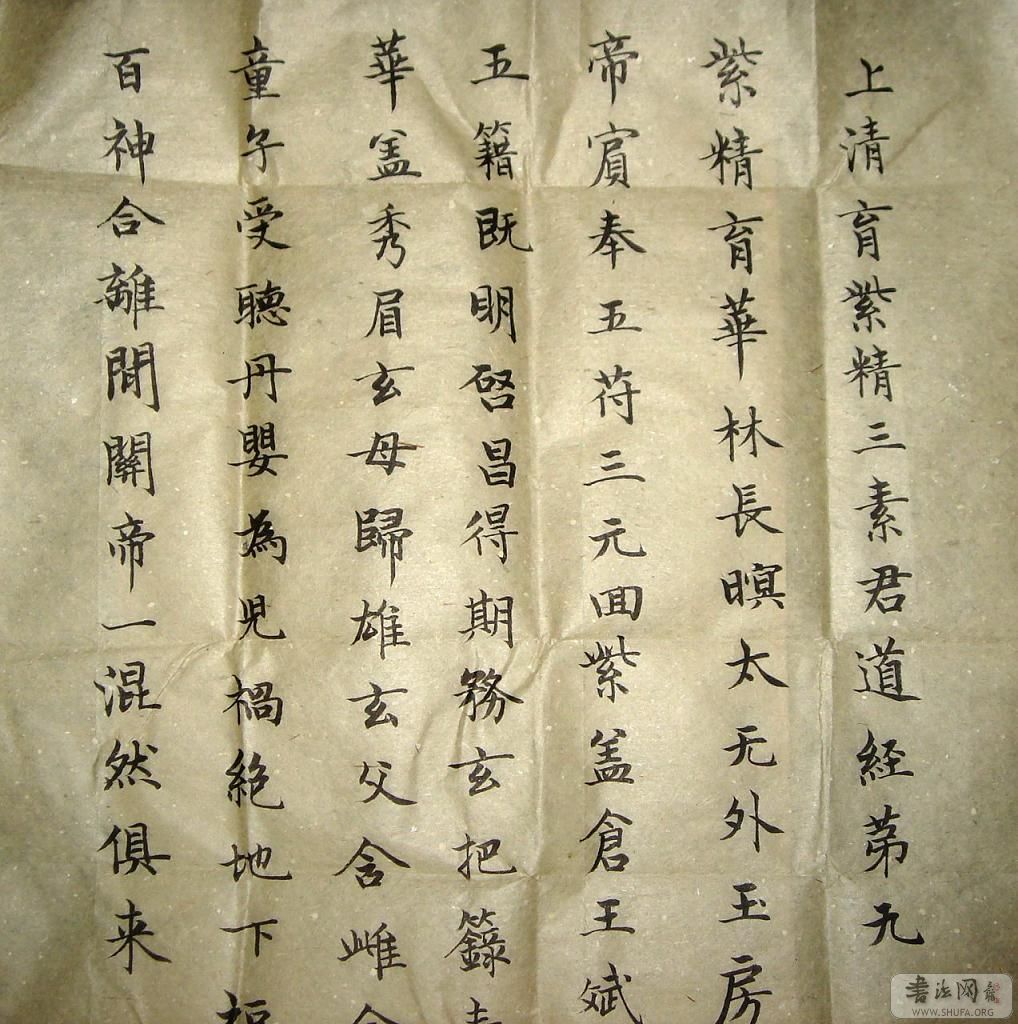 上清育紫精三素君道経苐九
紫精育華林長暝太无外玉房
帝賔奉五苻三元囬紫盖倉王斌
五籍既明啓昌得期務玄把籙
華盖秀眉玄母歸雄玄父含雌合
童子受聽丹嬰為児禍絶地下福
百神合離閒關帝一混然俱来
書法网
WWW.SHUFA.ORG